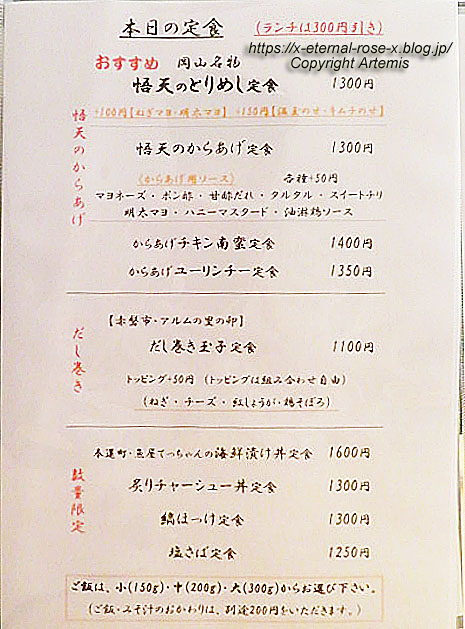 本日の定食 (ランチは300円引き)
https://x-eternal-rose-x.blog.jp/
Copyright Artemis
おすすめ 岡山名物
悟天のとりめし定食 1300円
+100円【ねぎマヨ・明太マヨ】 +150円【温玉のせ・キムチのせ】
悟天のからあげ
悟天のからあげ定食 1300円
《からあげ用ソース》 各種+50円
マヨネーズ・ポン酢・甘酢だれ・タルタル・スイートチリ
明太マヨ・ハニーマスタード・油淋鶏ソース
からあげチキン南蛮定食 1400円
からあげユーリンチー定食 1350円
だし巻き
【赤磐市・アルムの里の卵】
だし巻き玉子定食 1100円
トッピング+50円 (トッピングは組み合わせ自由)
(ねぎ・チーズ・紅しょうが・鶏そぼろ)
数量限定
奉還町・魚屋てっちゃんの海鮮漬け丼定食 1600円
炙りチャーシュー丼定食 1300円
縞ほっけ定食 1300円
塩さば定食 1250円
ご飯は、小(150g)・中(200g)・大(300g)からお選び下さい。
(ご飯・みそ汁のおかわりは、別途200円をいただきます。)